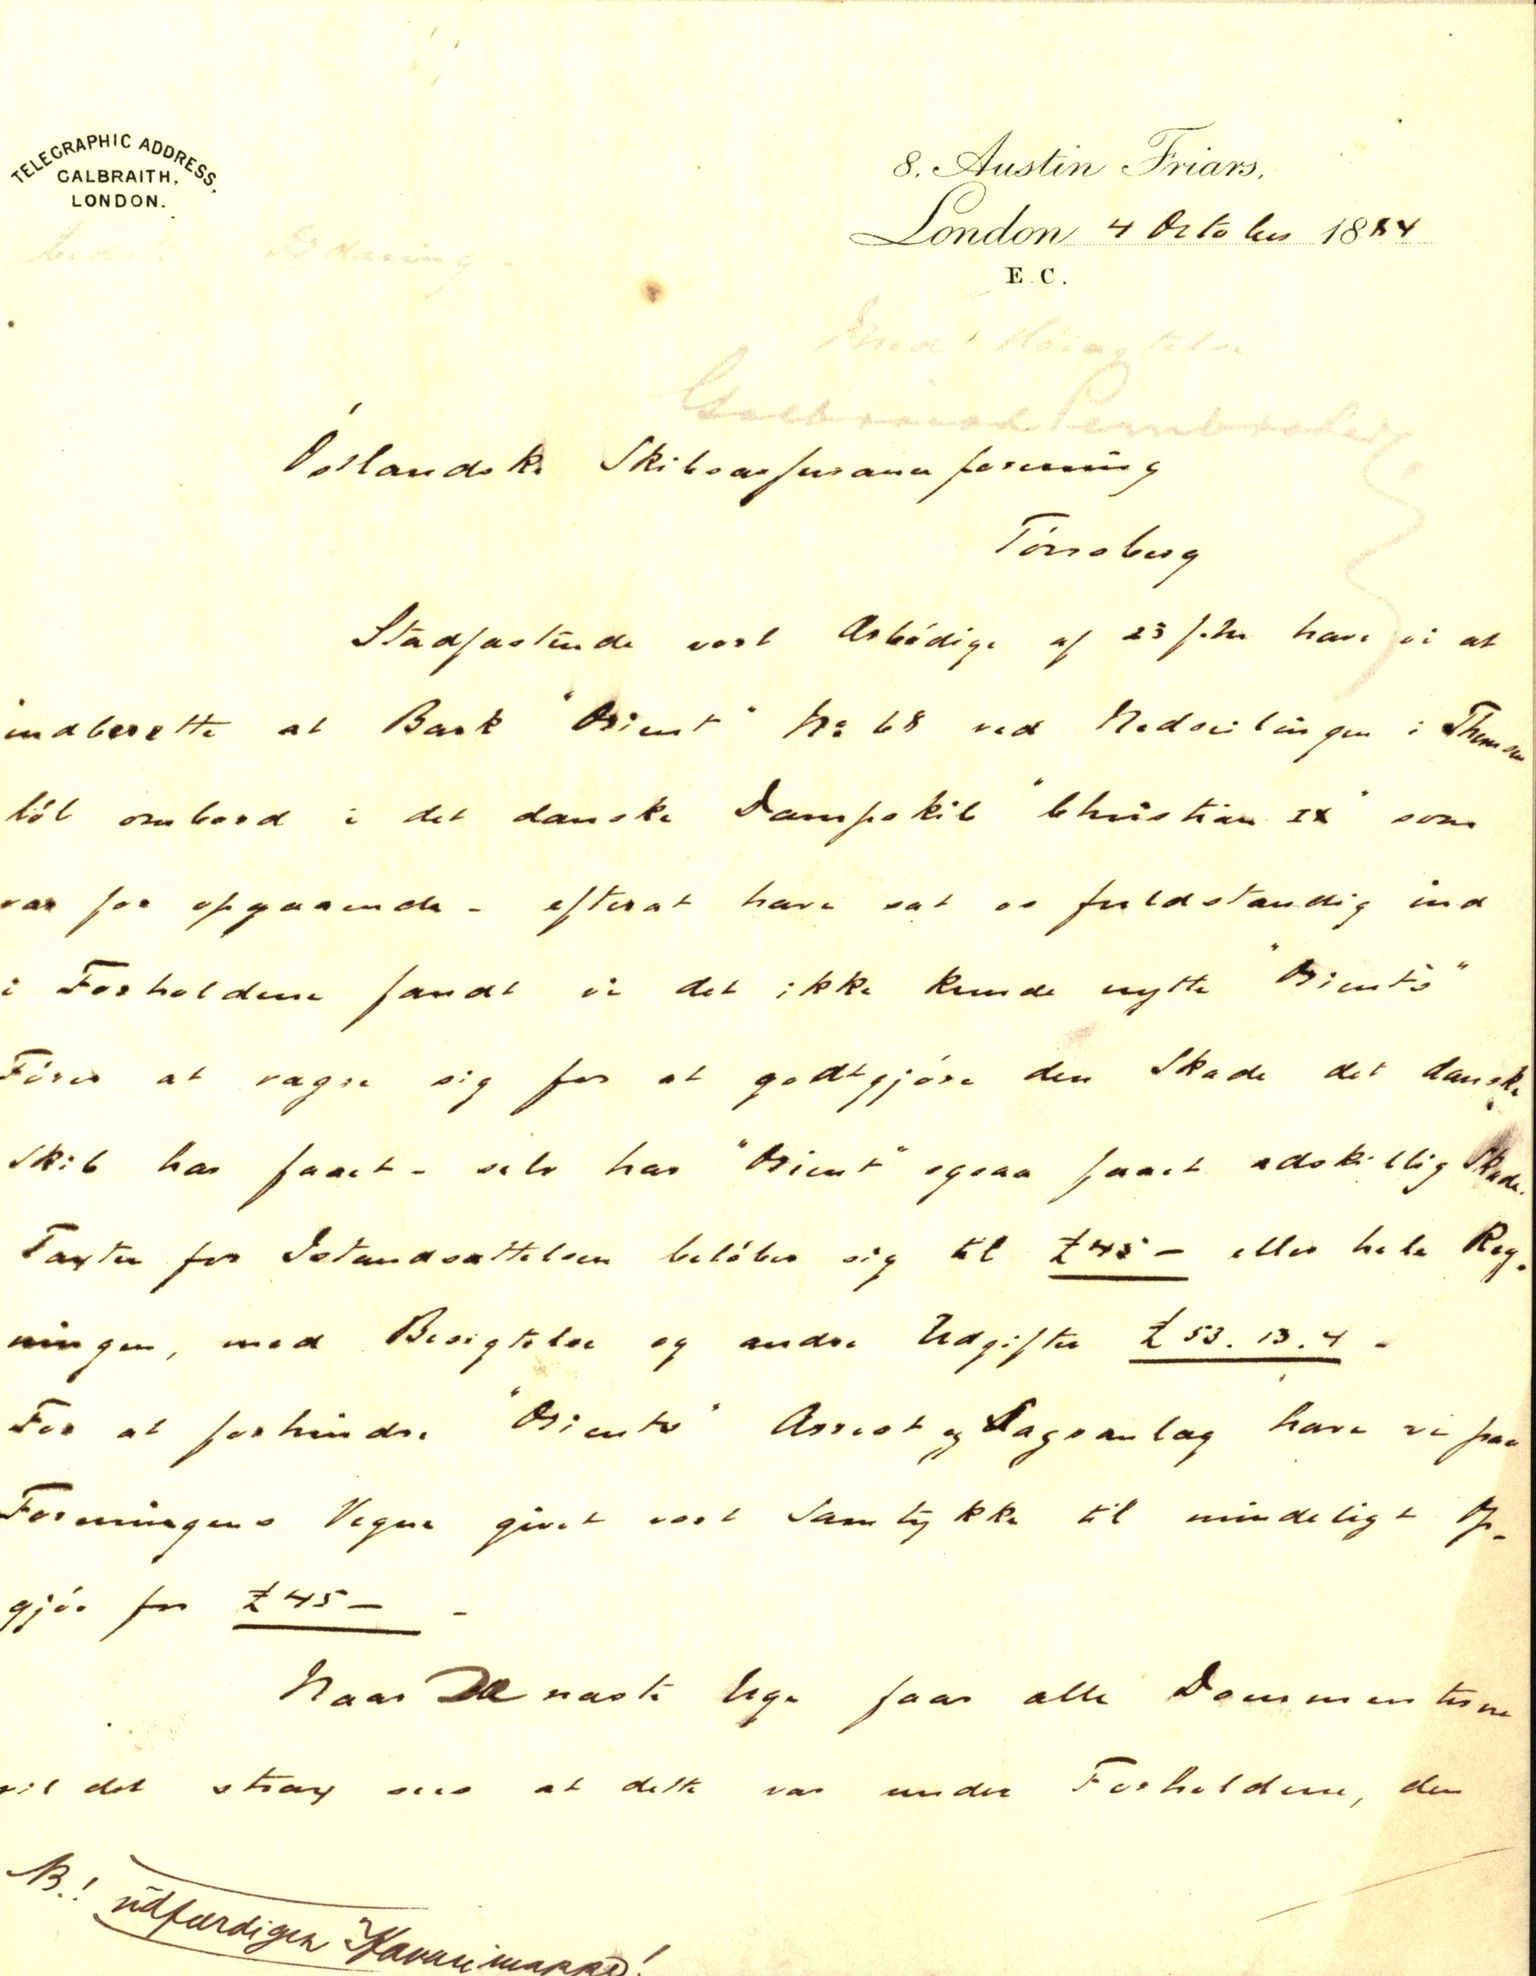 TELEGRAPHIC ADDRESS,
GALBRAITH,
LONDON.
8. Austin Friars,
London 4 October 1884
E.C.
Med Høiagtelse
Galbraith Pembroke
Óstlandske Skibsassuranceforening
Tónsberg
Stadfæstende vort Ærbódige af 23 f.M. have vi at
indberette at Bark "Orient" No 68 ved Nedseilingen i Themsen
lób ombord i det danske Dampskib "Christian IX" som
var for opgaaende - efterat have sat os fuldstændig ind
i Forholdene fandt vi det ikke kunde nytte "Orients"
Fórer at vægre sig for at godtgjóre den Skade det danske
Skib har faaet - selv har "Orient" ogsaa faaet adskillig Skade.
Taxten for Istandsættelsen belóber sig til £45 — eller hele Reg-
ningen, med Besigtelse og andre Udgifter £53.13.4 -
For at forhindre "Orients" Arrest og Sagsanlæg have vi paa
Foreningens Vegne givet vort Samtykke til mindeligt Op-
gjór for £45 — -
Naar De næste Uge faar alle Documenterne
vil det strax sees at dette var under Forholdene, den
NB.! udfærdigen Havarimappe!